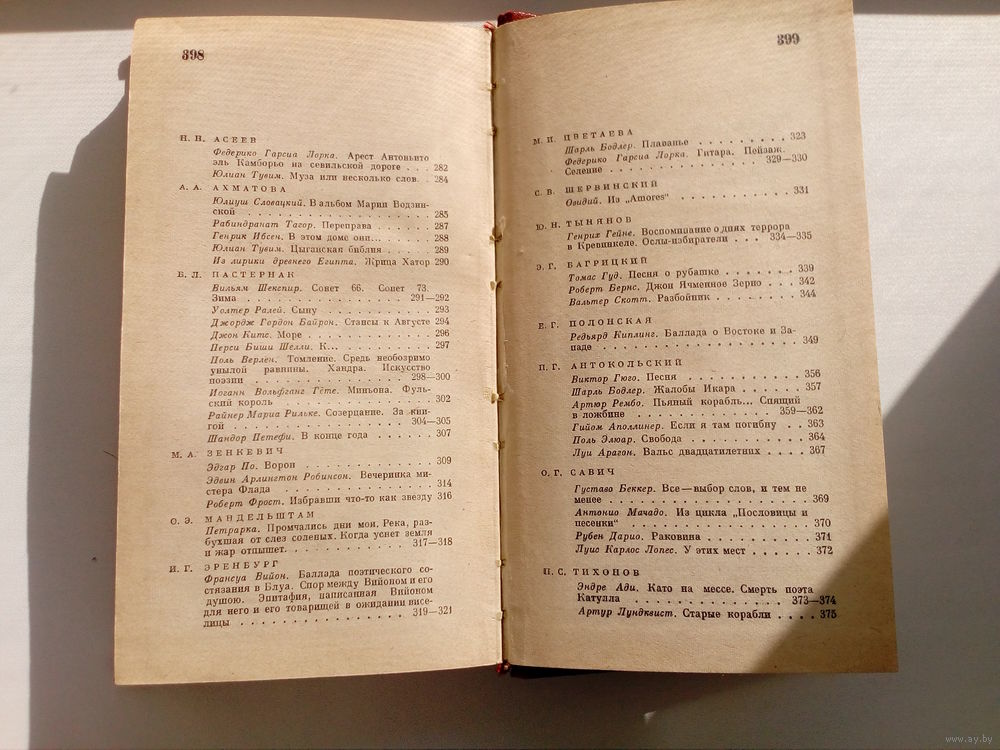 398
Н. Н. АСЕЕВ
Федерико Гарсиа Лорка. Арест Антоньито
эль Камборьо на севильской дороге . . . 282
Юлиан Тувим. Муза или несколько слов. . 284
А. А. АХМАТОВА
Юлиуш Словацкий. В альбом Марии Водзин-
ской . . . . . . . . . . . . . . . . 285
Рабиндранат Тагор. Переправа . . . . . . 287
Генрик Ибсен. В этом доме они... . . . . 288
Юлиан Тувим. Цыганская библия . . . . . 289
Из лирики древнего Египта. Жрица Хатор 290
Б. Л. ПАСТЕРНАК
Вильям Шекспир. Сонет 66. Сонет 73.
Зима . . . . . . . . . . . . . . 291—292
Уолтер Ралей. Сыну . . . . . . . . . . 293
Джордж Гордон Байрон. Стансы к Августе 294
Джон Китс. Море . . . . . . . . . . . 296
Перси Биши Шелли. К... . . . . . . . . 297
Поль Верлен. Томление. Средь необозримо
унылой равнины. Хандра. Искусство
поэзии . . . . . . . . . . . . . 298—300
Иоганн Вольфганг Гёте. Миньона. Фуль-
ский король . . . . . . . . . . . . . 302
Райнер Мариа Рильке. Созерцание. За кни-
гой . . . . . . . . . . . . . . 304—305
Шандор Петефи. В конце года . . . . . . 307
М. А. ЗЕНКЕВИЧ
Эдгар По. Ворон . . . . . . . . . . . 309
Эдвин Арлингтон Робинсон. Вечеринка ми-
стера Флада . . . . . . . . . . . . . 314
Роберт Фрост. Избравши что-то как звезду 316
О. Э. МАНДЕЛЬШТАМ
Петрарка. Промчались дни мои. Река, раз-
бухшая от слез соленых. Когда уснет земля
и жар отпышет. . . . . . . . . . 317—318
И. Г. ЭРЕНБУРГ
Франсуа Вийон. Баллада поэтического со-
стязания в Блуа. Спор между Вийоном и его
душою. Эпитафия, написанная Вийоном
для него и его товарищей в ожидании висе-
лицы . . . . . . . . . . . . . . 319—321
399
М. И. ЦВЕТАЕВА
Шарль Бодлер. Плаванье . . . . . . . . 323
Федерико Гарсиа Лорка. Гитара. Пейзаж.
Селение . . . . . . . . . . . . . 329—330
С. В. ШЕРВИНСКИЙ
Овидий. Из „Amores“ . . . . . . . . . 331
Ю. Н. ТЫНЯНОВ
Генрих Гейне. Воспоминание о днях террора
в Кревинкеле. Ослы-избиратели . . . 334—335
Э. Г. БАГРИЦКИЙ
Томас Гуд. Песня о рубашке . . . . . . 339
Роберт Бернс. Джон Ячменное Зерно . . . 342
Вальтер Скотт. Разбойник . . . . . . . 344
Е. Г. ПОЛОНСКАЯ
Редьярд Киплинг. Баллада о Востоке и За-
паде . . . . . . . . . . . . . . . . 349
П. Г. АНТОКОЛЬСКИЙ
Виктор Гюго. Песня . . . . . . . . . . 356
Шарль Бодлер. Жалобы Икара . . . . . 357
Артюр Рембо. Пьяный корабль... Спящий
в ложбине . . . . . . . . . . . . 359—362
Гийом Аполлинер. Если я там погибну . . 363
Поль Элюар. Свобода . . . . . . . . . 364
Луи Арагон. Вальс двадцатилетних . . . . 367
О. Г. САВИЧ
Густаво Беккер. Все—выбор слов, и тем не
менее . . . . . . . . . . . . . . . . 369
Антонио Мачадо. Из цикла „Пословицы и
песенки“ . . . . . . . . . . . . . . 370
Рубен Дарио. Раковина . . . . . . . . 371
Луис Карлос Лопес. У этих мест . . . . . 372
Н. С. ТИХОНОВ
Эндре Ади. Като на мессе. Смерть поэта
Катулла . . . . . . . . . . . . . 373—374
Артур Лундквист. Старые корабли . . . . 375
www.ay.by